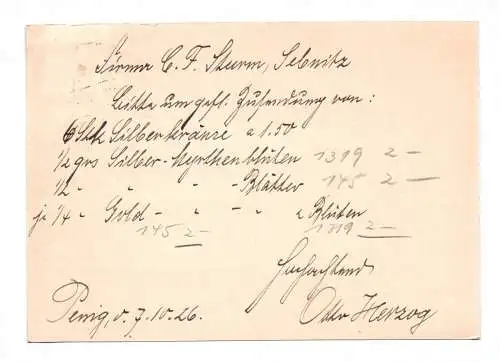 Firma C. F. Sturm, Sebnitz
Bitte um gefl. Zusendung von:
6 Stck Silberkränze a 1.50
1/2 grs Silber-Myrthenblüten 1319 2 —
1/2 - " - " - Blätter 145 2 —
je 1/4 " Gold - " - " - u Blüten
145 2 — 1319 2 —
Hochachtend
Penig, d. 7.10.26. Otto Herzog